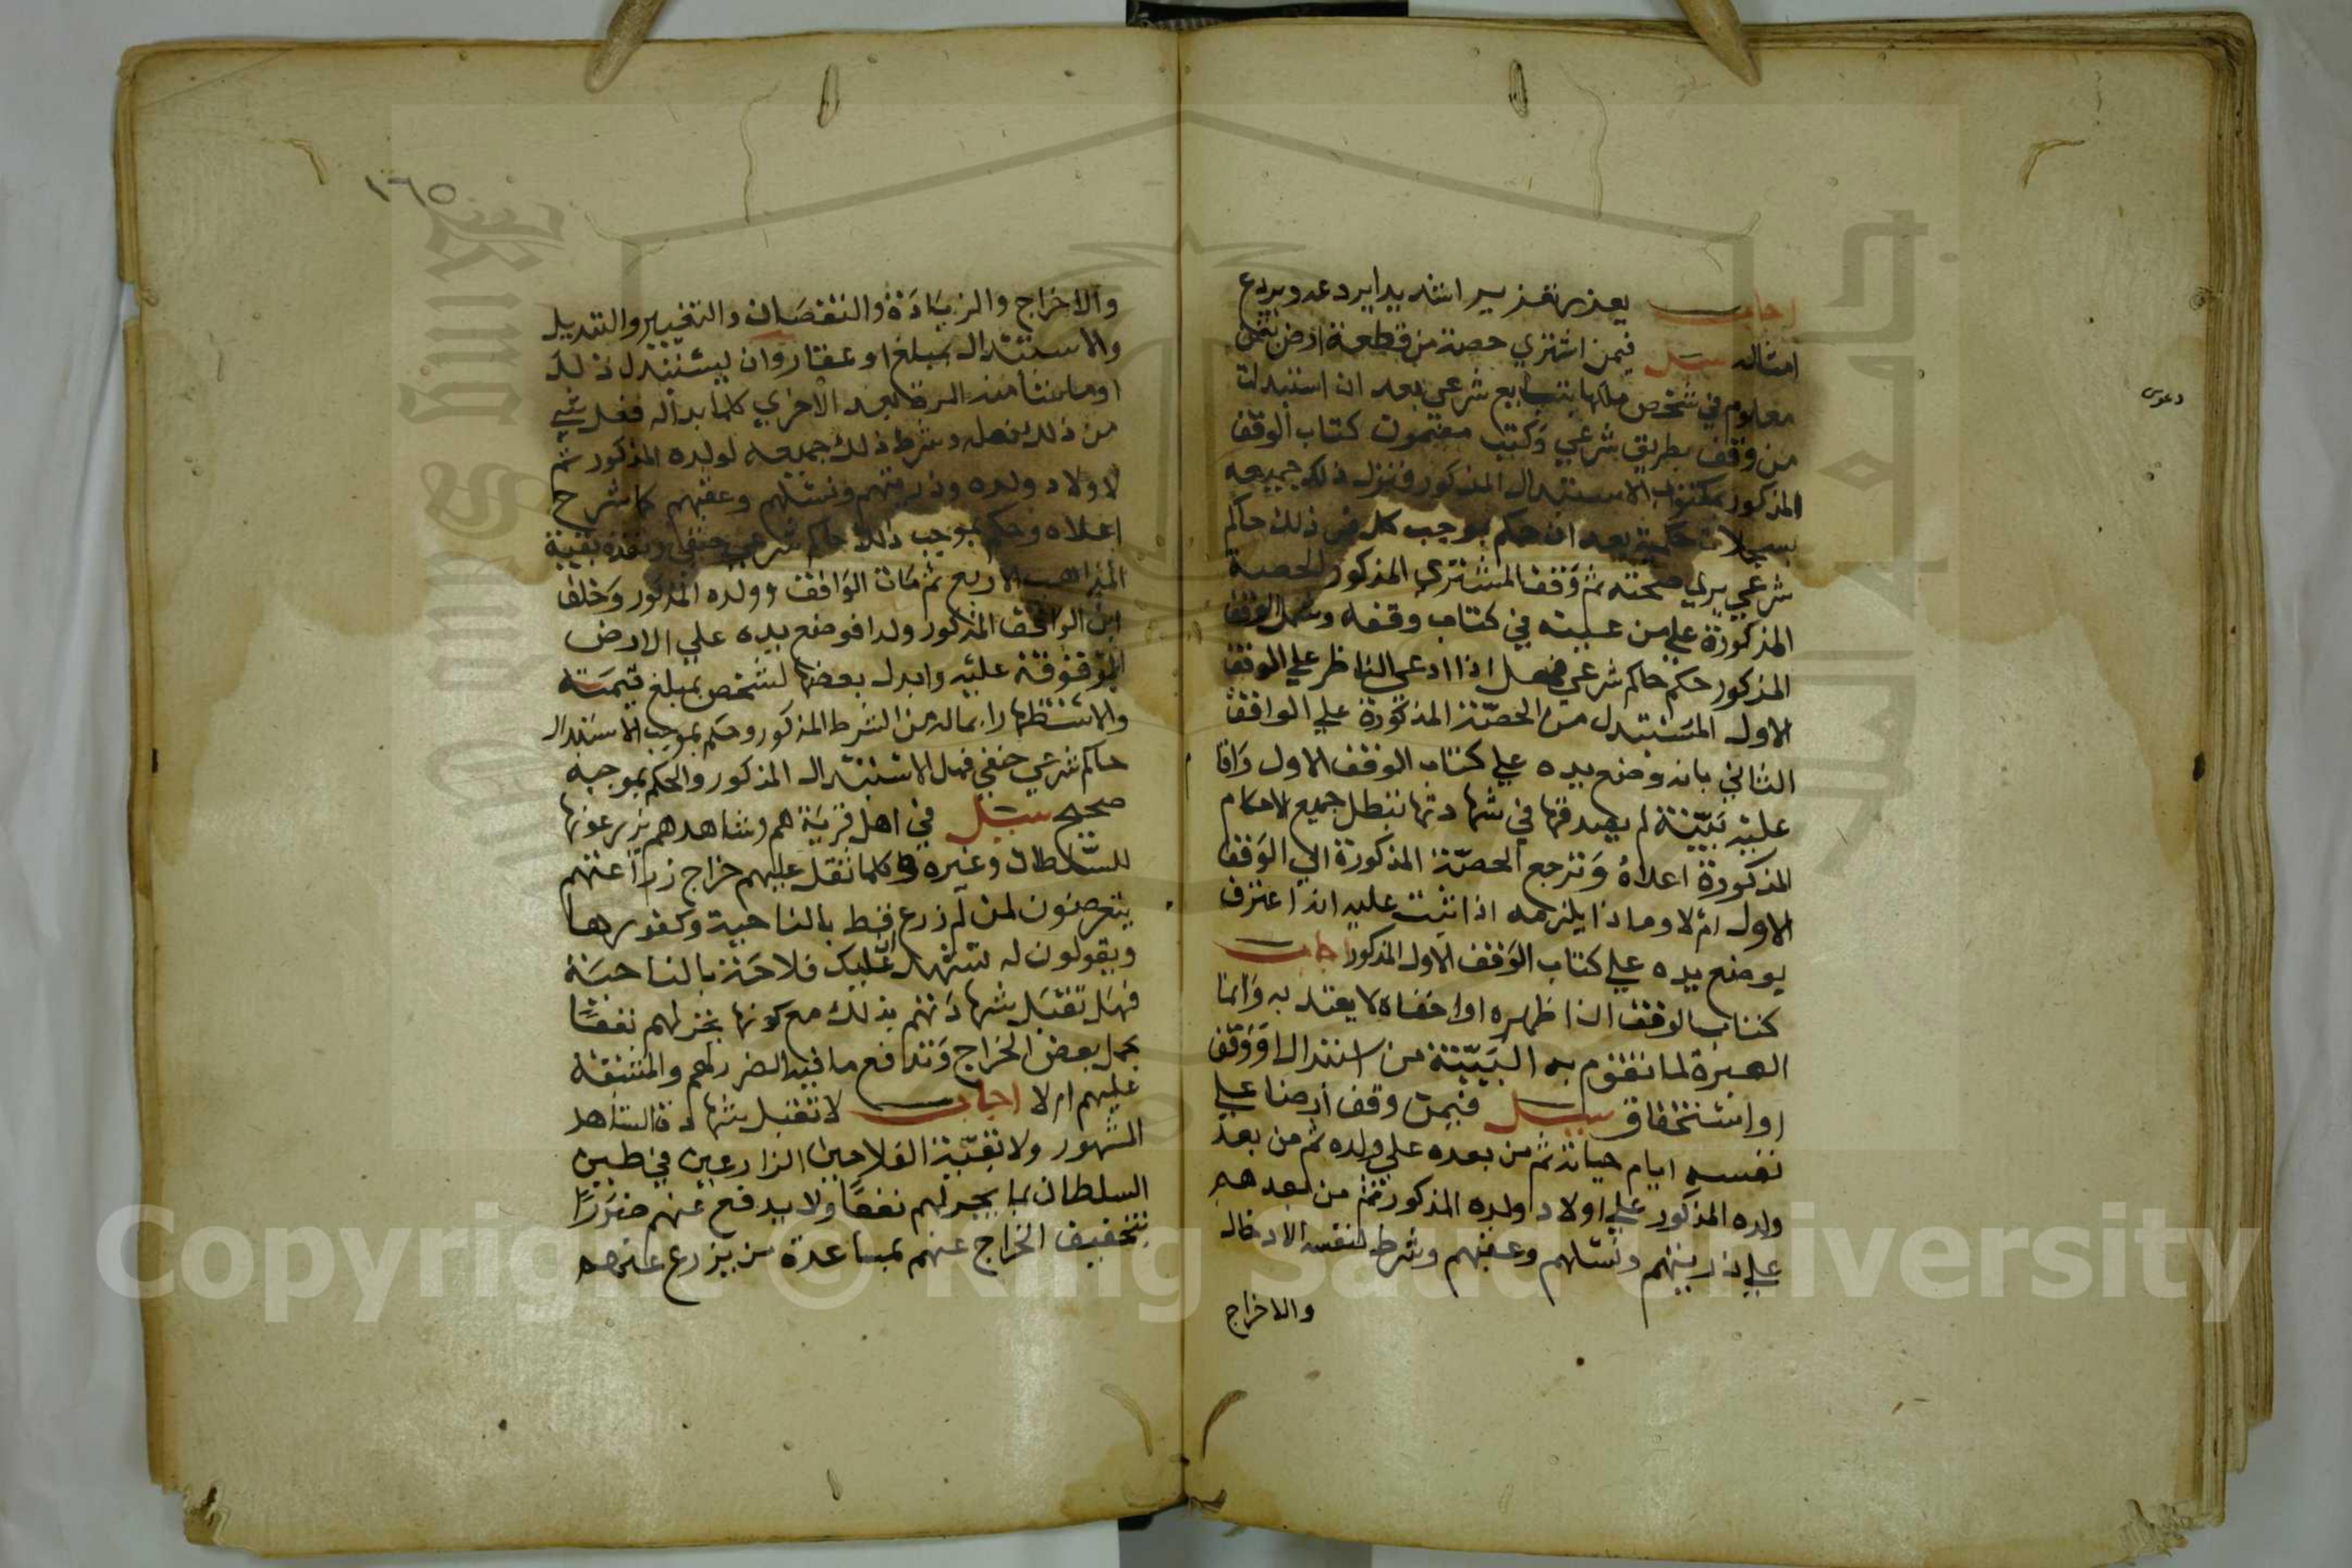 اجاب يعذر تعذيرا شديدا يردعه ويردع
امثاله سئل فيمن اشتري حصة من قطعة ارض بثمن
معلوم في شخص ملكها بتبايع شرعي بعد ان استبدلت
من وقف بطريق شرعي وكتب مضمون كتاب الوقف
المذكور بمكتوب الاستبدال المذكور ونزل ذلك جميعه
بسجلات حكمية بعد ان حكم بموجب كل من ذلك حاكم
شرعي يري صحته ثم وقف المشتري المذكور الحصة
المذكورة علي من عينه في كتاب وقفه وشمل الوقف
المذكور حكم حاكم شرعي فهل اذا ادعي الناظر علي الوقف
الاول المستبدل من الحصة المذكورة علي الواقف
الثاني بانه وضع يده علي كتاب الوقف الاول واقا
عليه بينة لم يصدقها في شهادتها تبطل جميع الاحكام
المذكورة اعلاه وترجع الحصة المذكورة الي الوقف
الاول ام لا وماذا يلزمه اذا ثبت عليه انه اعترف
بوضع يده علي كتاب الوقف الاول المذكور اجاب
كتاب الوقف اذا ظهره او اخفاه لا يعتد به وانما
العبرة لما تقوم به البينة من استبدال او وقف
او استحقاق سئل فيمن وقف ارضا علي
نفسه ايام حياته ثم من بعده علي ولده ثم من بعد
ولده المذكور علي اولاد ولده المذكور ثم من بعدهم
علي ذريتهم ونسلهم وعقبهم وشرط لنفسه الادخال
والاخراج
دعوى
١٦٥
والاخراج والزيادة والنقصان والتغيير والتبديل
والاستبدال بمبلغ او عقار وان يستبدل ذلك
او ما شا منه المرة بعد الاخري كلما بدا له فعل شي
من ذلك فعله وشرط ذلك جميعه لولده المذكور ثم
لاولاد ولده وذريتهم ونسلهم وعقبهم كما شرح
اعلاه وحكم بموجب ذلك حاكم شرعي حنفي ونفذه بقية
المذاهب الاربع ثم مات الواقف وولده المذكور وخلف
ابن الواقف المذكور ولدا فوضع يده علي الارض
الموقوفة عليه وابدل بعضها لشخص بمبلغ قيمته
والاستظهارا بماله من الشرط المذكور وحكم بموجب الاستبدال
حاكم شرعي حنفي فهل الاستبدال المذكور والحكم بموجبه
صحيح سئل في اهل قرية هم وشاهدهم يزرعونها
للسلطان وغيره وكلما ثقل عليهم خراج زراعتهم
يتعرضون لمن لم زرع قط بالناحية وكفورها
ويقولون له تشهد عليك فلاحة بالناحية
فهل تقبل شهادتهم بذلك مع كونها تجر لهم نفعا
بحمل بعض الخراج وتدافع ما فيه الضرر لهم والمشقة
عليهم ام لا اجاب لا تقبل شهادة الشاهد
المشهور ولا بقية الفلاحين الزارعين في طين
السلطان بما يجر لهم نفعا ولا يدفع عنهم ضررا
بتخفيف الخراج عنهم بمساعدة من يزرع عندهم
Copyright © King Saud University